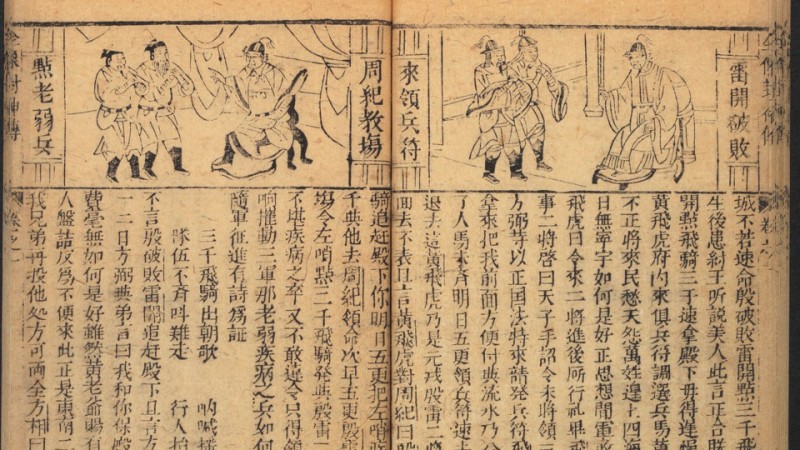 雷開破敗
來領兵符
城不若速命殷破敗雷開點三千飛
生後患紂王听說美人此言正合朕
開點飛騎三千速拿殿下毋得遲悮
黃飛虎府內來俱兵符調選兵馬黃
不正將來民愁天怨萬姓遑四海
日無寧宇如何是好正思想間軍
飛虎曰令來二將進後所行礼畢飛
事二將啓曰天子手詔令末將領三
方弼等以正国法特來請發兵符飛
拿來把我前面方便付與流水乃
了人馬未斉明日五更領兵符速
退去這黃飛虎乃是元戎殷雷二將
回去不表且言黃飛虎對周紀曰殷
周紀教場
點老弱兵
騎追赶殿下你明日五更把左哨
千與他去周紀領命次早五更殷雷
場令左哨點二千飛騎發與殷雷
不堪疾病之卒又不敢違令只得領
响擂動三軍那老弱疾病之兵如何
隨軍征進有詩為証
三千飛騎出朝歌 吶喊搖
隊伍不斉叫難走 行人拍
不言殷破敗雷開追赶殿下且言方
一二日方弼與弟言曰我和你保殿
費毫無如何是好雖然黃老爺賜有
人盤詰反為不便來此正是東南二
我兄弟再投他処方可兩全方相曰
卷之一